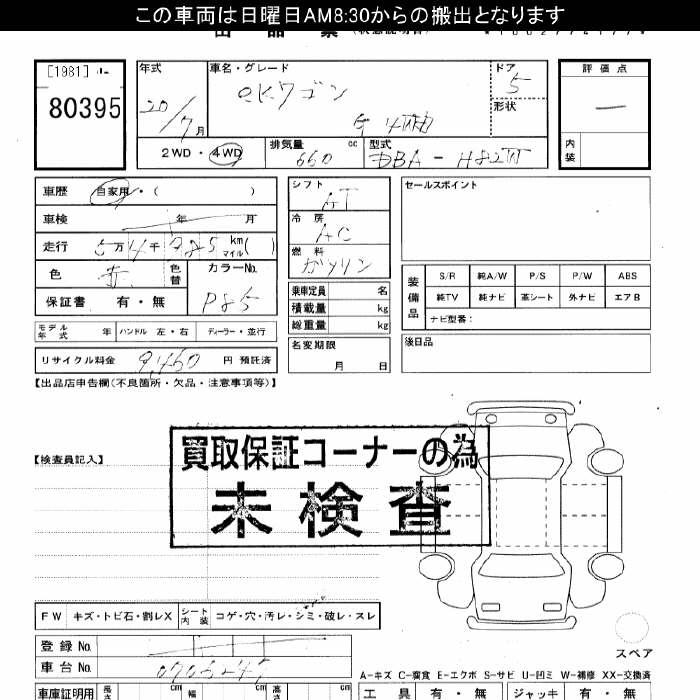 この車両は日曜日AM8:30からの搬出となります
[1981]
80395
年式
20/7月
車名・グレード
eKワゴン
G 4WD
ドア
5
形状
評価点
内装
2WD・4WD
排気量 660 cc
型式 DBA-H82W
車歴 自家用・( )
車検 年 月
走行 5万4千985 km マイル( )
色 赤 色替
カラーNo. P85
保証書 有・無
モデル年式 年 ハンドル 左・右 ディーラー・並行
リサイクル料金 9,460 円 預託済
シフト
AT
冷房
AC
燃料
ガソリン
乗車定員 名
積載量 kg
総重量 kg
名変期限
月 日
セールスポイント
装備品
S/R 純A/W P/S P/W ABS
純TV 純ナビ 革シート 外ナビ エアB
ナビ型番:
後日品
【出品店申告欄(不良箇所・欠品・注意事項等)】
【検査員記入】
買取保証コーナーの為
未検査
FW キズ・トビ石・割レX シート内装 コゲ・穴・汚レ・シミ・破レ・スレ
登録No.
車台No. 0703247
スペア
A-キズ C-腐食 E-エクボ S-サビ U-凹ミ W-補修 XX-交換済
車庫証明用 長さ cm 幅 cm 高さ cm
工具 有・無 ジャッキ 有・無